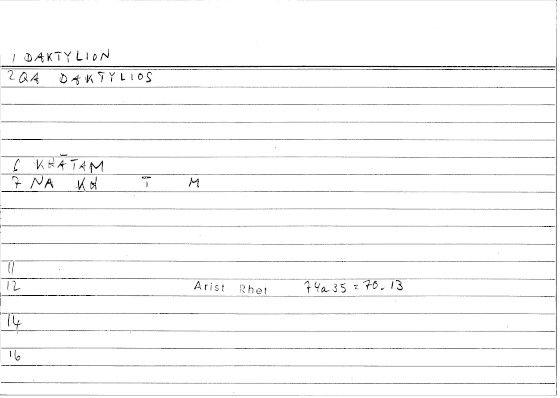 1 DAKTYLION
2 QA DAKTYLIOS
6 KHĀTAM
7 NA KH T M
11
12 Arist Rhet 74a35 = 70.13
14
16